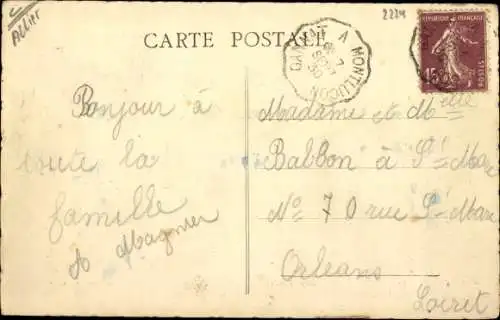 Allier
2224
CARTE POSTALE
GANNAT A MONTLUÇON
7
30
RÉPUBLIQUE FRANÇAISE
15
POSTES
Bonjour à
toute la
famille
A Magnier
Madame et Melle
Babbon à St Marc
No 70 rue St Marc
Orleans
Loiret